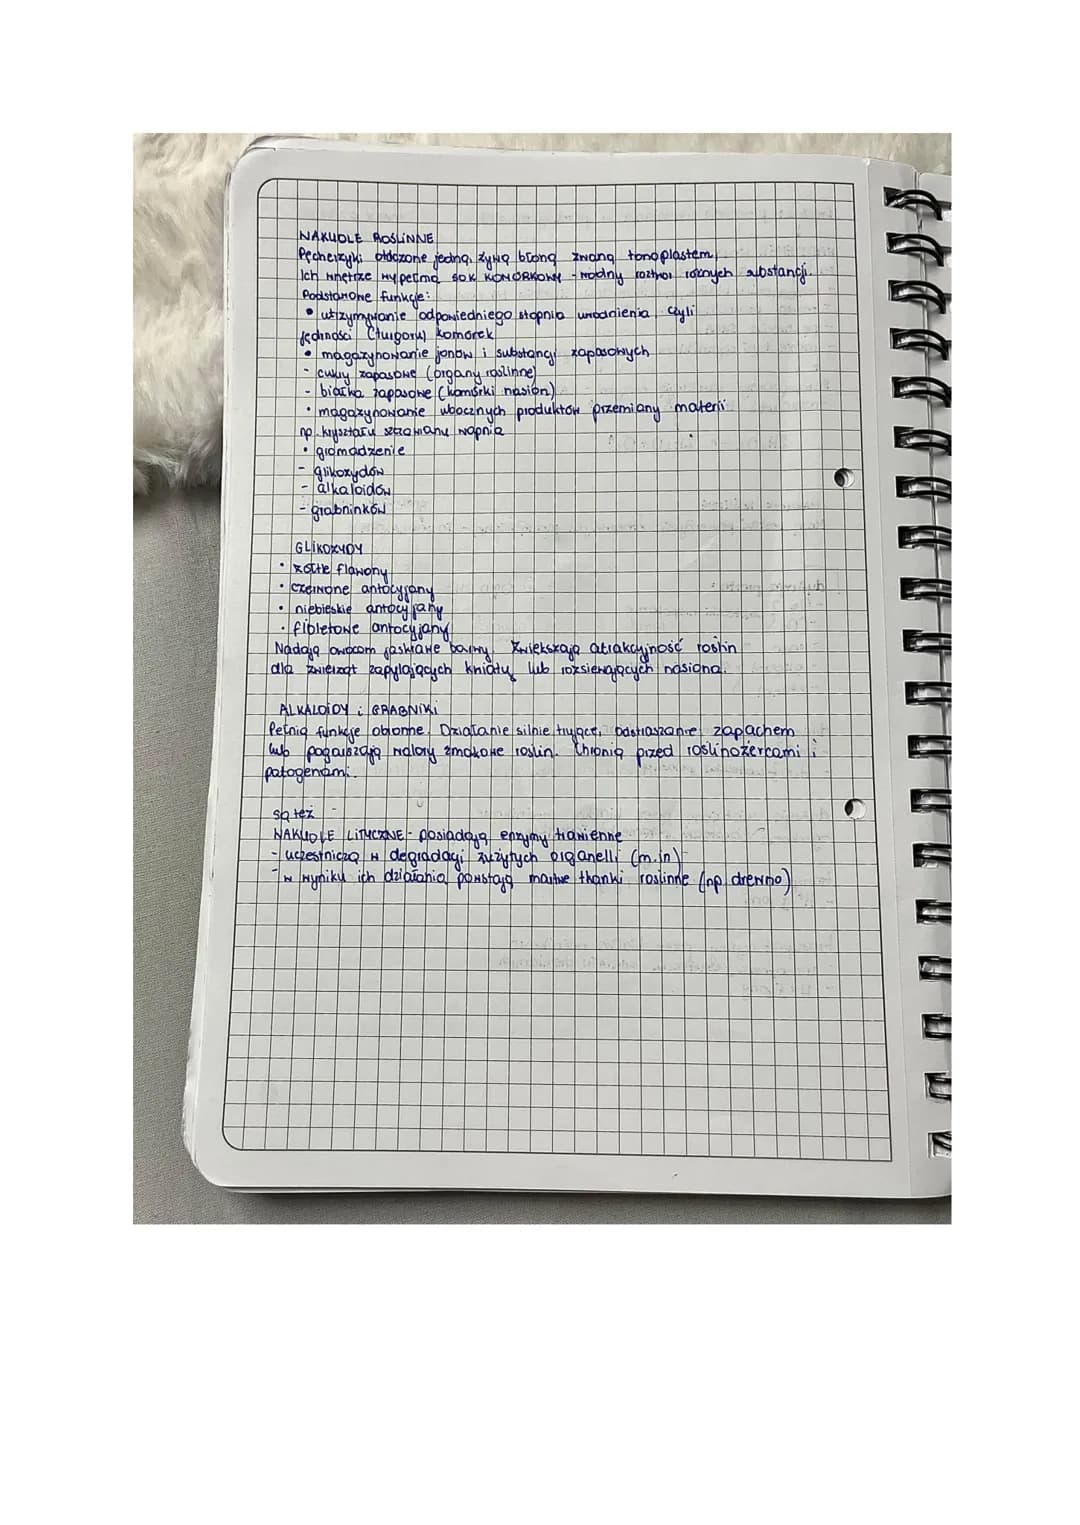 WAKUOLE ROŚLINNE
Pęcherzyki otoczone jedną żywą błoną zwaną tonoplastem,
Ich wnętrze wypełnia SOK KOMÓRKOWY - wodny roztwór różnych substancji.
Podstawowe funkcje:
• utrzymywanie odpowiedniego stopnia uwodnienia, czyli
jędrności (turgoru) komórek
• magazynowanie jonów i substancji zapasowych
- cukry zapasowe (organy roślinne)
- białka zapasowe (komórki nasion)
• magazynowanie ubocznych produktów przemiany materii
np. kryształu szczawianu wapnia
• gromadzenie
- glikozydów
- alkaloidów
- grabników
GLIKOZYDY
• żółte flawony
• czerwone antocyjany
• niebieskie antocyjany
• fioletowe antocyjany
Nadają owocom jaskrawe barwy. Zwiększają atrakcyjność roślin
dla zwierząt zapylających kwiaty lub rozsiewających nasiona.
ALKALOIDY i GRABNIKI
Pełnią funkcje obronne. Działanie silnie trujące, odstraszanie zapachem
lub pogarszają walory smakowe roślin. Chronią przed roślinożercami i
patogenami.
są też
WAKUOLE LITYCZNE - posiadają enzymy trawienne
- uczestniczą w degradacji zużytych organelli (m.in)
- w wyniku ich działania powstają martwe tkanki roślinne (np. drewno)